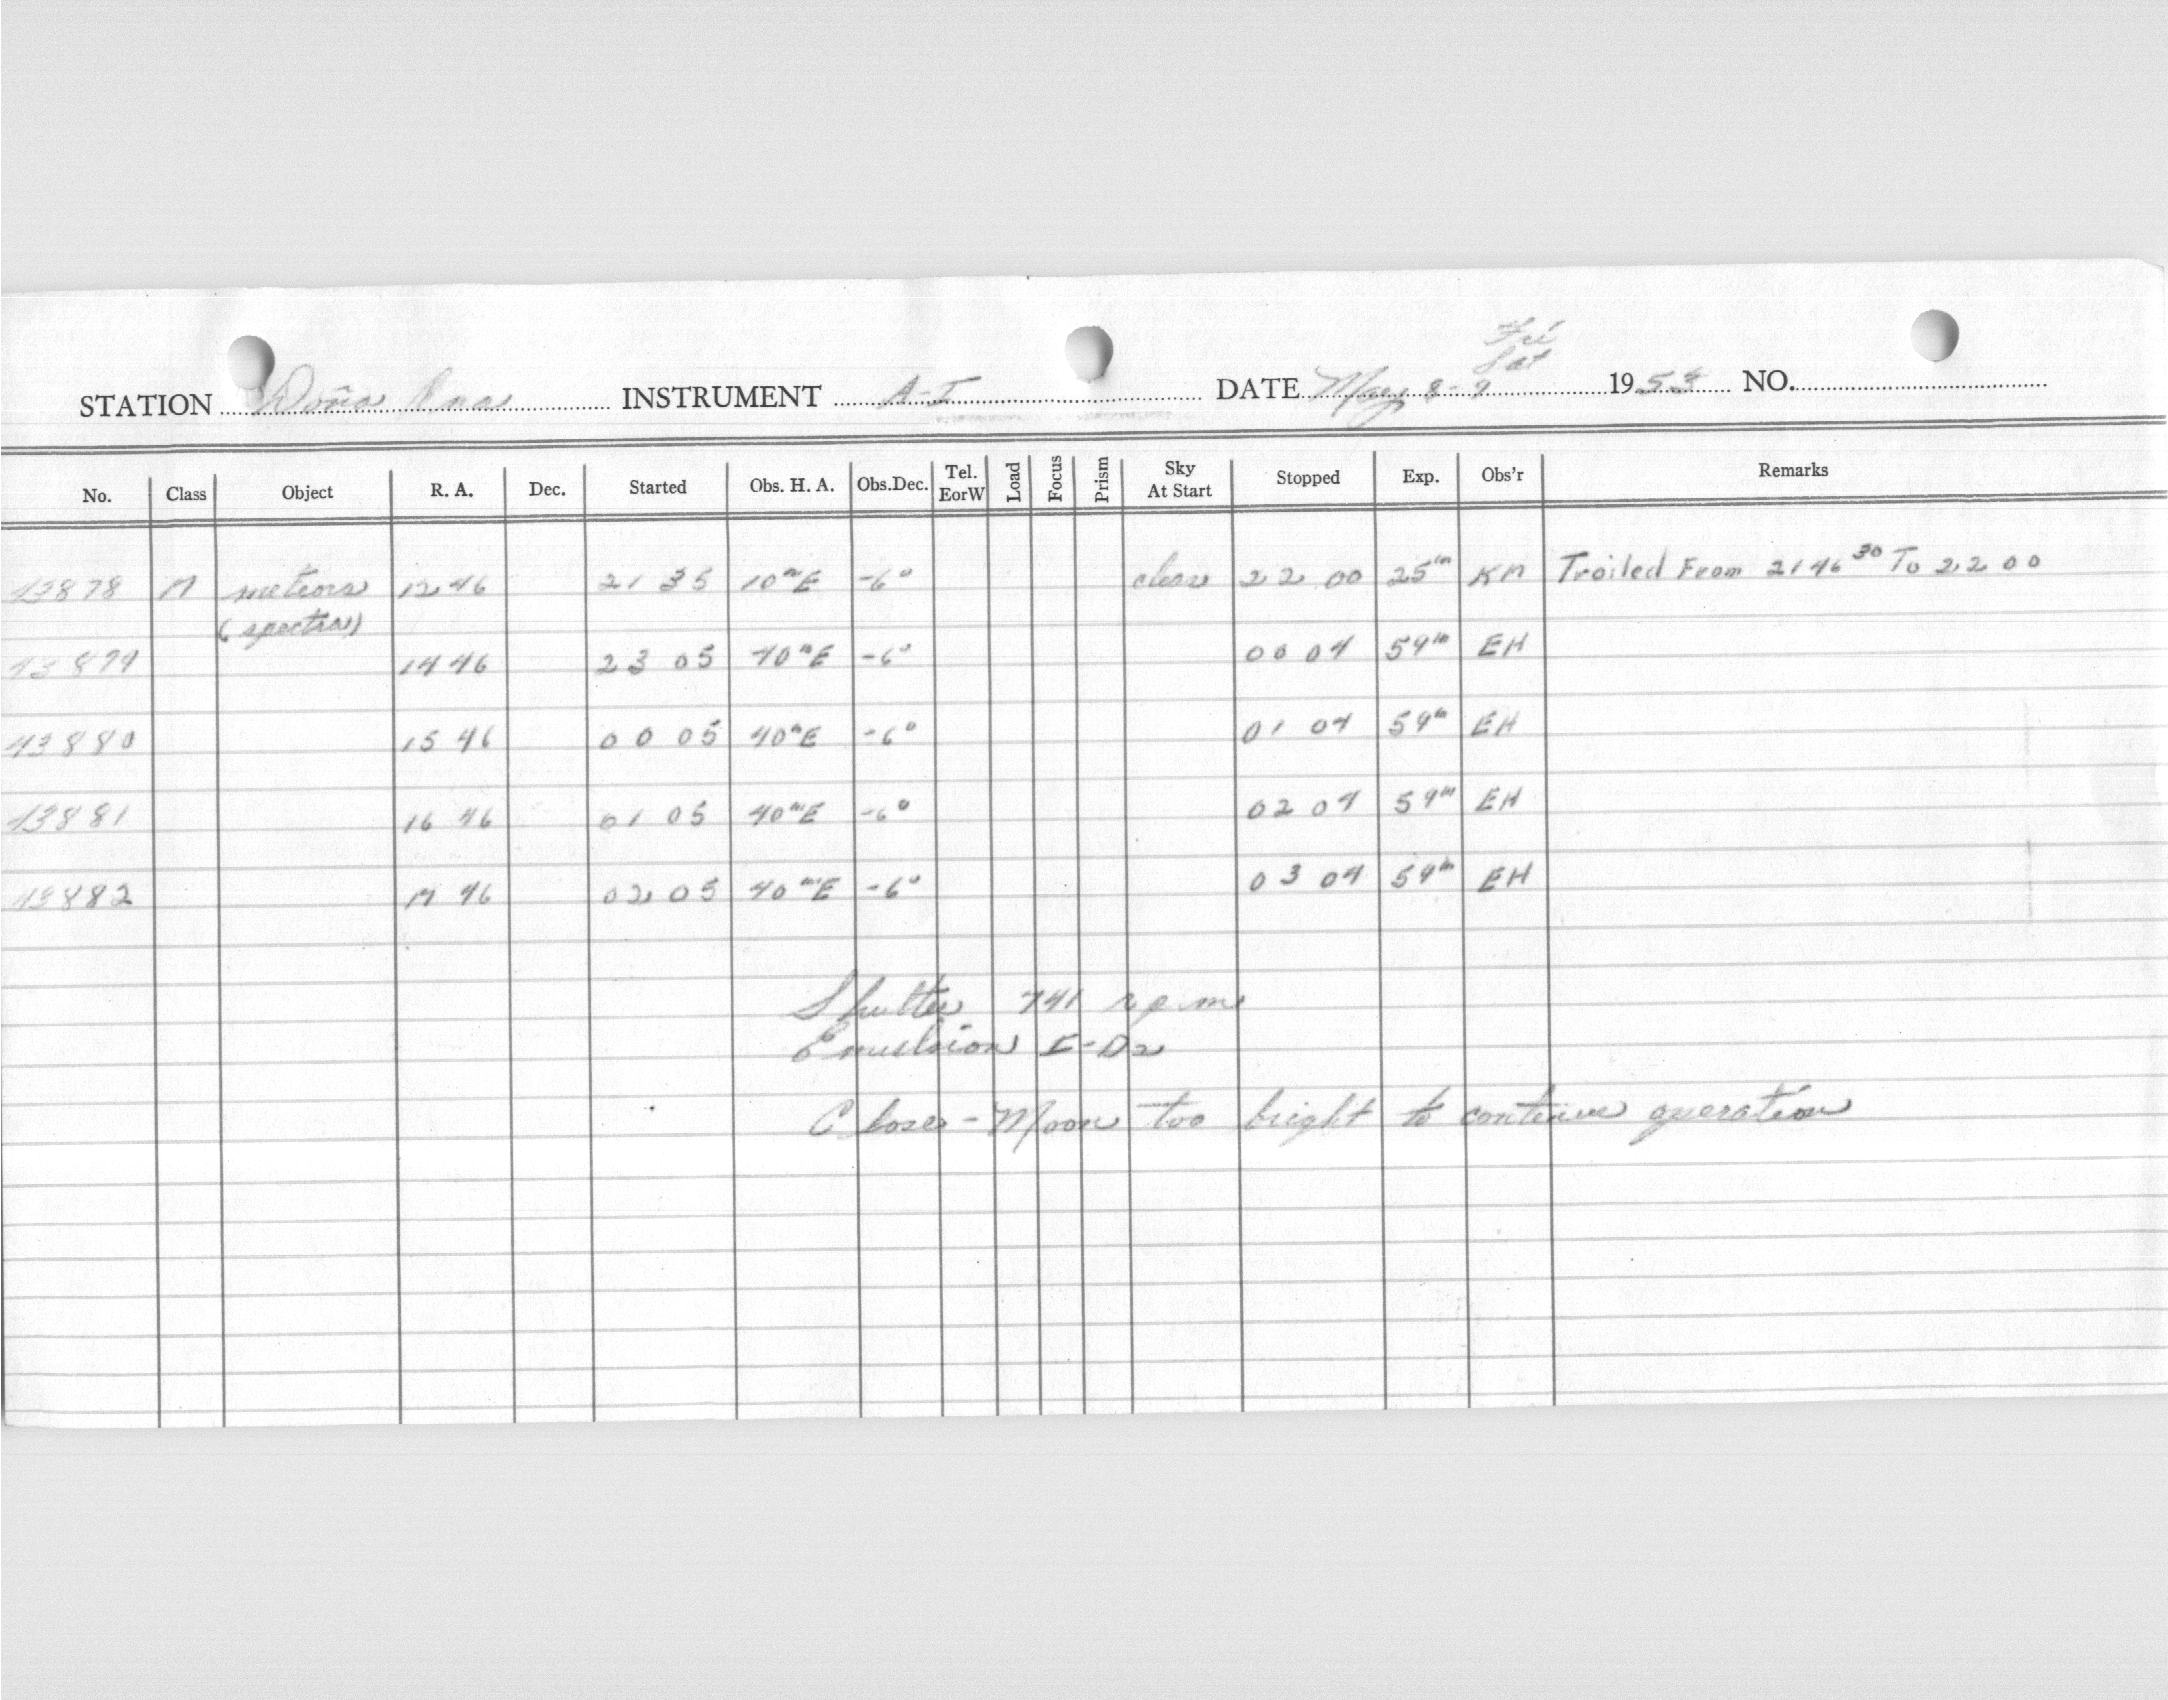 Fri
Sat
STATION Doña Ana INSTRUMENT A-I DATE May 8-9 1953 NO.
No. Class Object R. A. Dec. Started Obs. H. A. Obs.Dec. Tel. EorW Load Focus Prism Sky At Start Stopped Exp. Obs'r Remarks
13878 M meteors 12 46 21 35 10ᵐE -6° clear 22 00 25ᵐ KM Trailed From 21 46 ³⁰ To 22 00
(spectra)
13879 14 46 23 05 40ᵐE -6° 00 04 59ᵐ EH
13880 15 46 00 05 40ᵐE -6° 01 04 59ᵐ EH
13881 16 46 01 05 40ᵐE -6° 02 04 59ᵐ EH
13882 17 46 02 05 40ᵐE -6° 03 04 59ᵐ EH
Shutter 741 rpm
Emulsion I-D2
Close - Moon too bright to continue operation